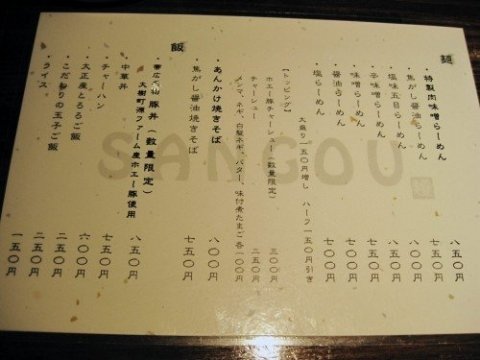 麺
・特製肉味噌らーめん 八五〇円
・焦がし醤油らーめん 七五〇円
・塩味五目らーめん 八〇〇円
・辛味噌らーめん 七五〇円
・味噌らーめん 七〇〇円
・醤油らーめん 七〇〇円
・塩らーめん 七〇〇円
大盛り一五〇円増し ハーフ一五〇円引き
【トッピング】
ホエー豚チャーシュー(数量限定) 三〇〇円
チャーシュー 二五〇円
メンマ、ネギ、白髪ネギ、バター、味付煮たまご 各一〇〇円
・あんかけ焼きそば 八〇〇円
・焦がし醤油焼きそば 七五〇円
飯
・帯広 豚丼(数量限定) 八五〇円
大樹町源ファーム産ホエー豚使用
・中華丼 七五〇円
・チャーハン 六〇〇円
・大正産とろろご飯 二五〇円
・こだわりの玉子ご飯 二五〇円
・ライス 一五〇円
SANGOU